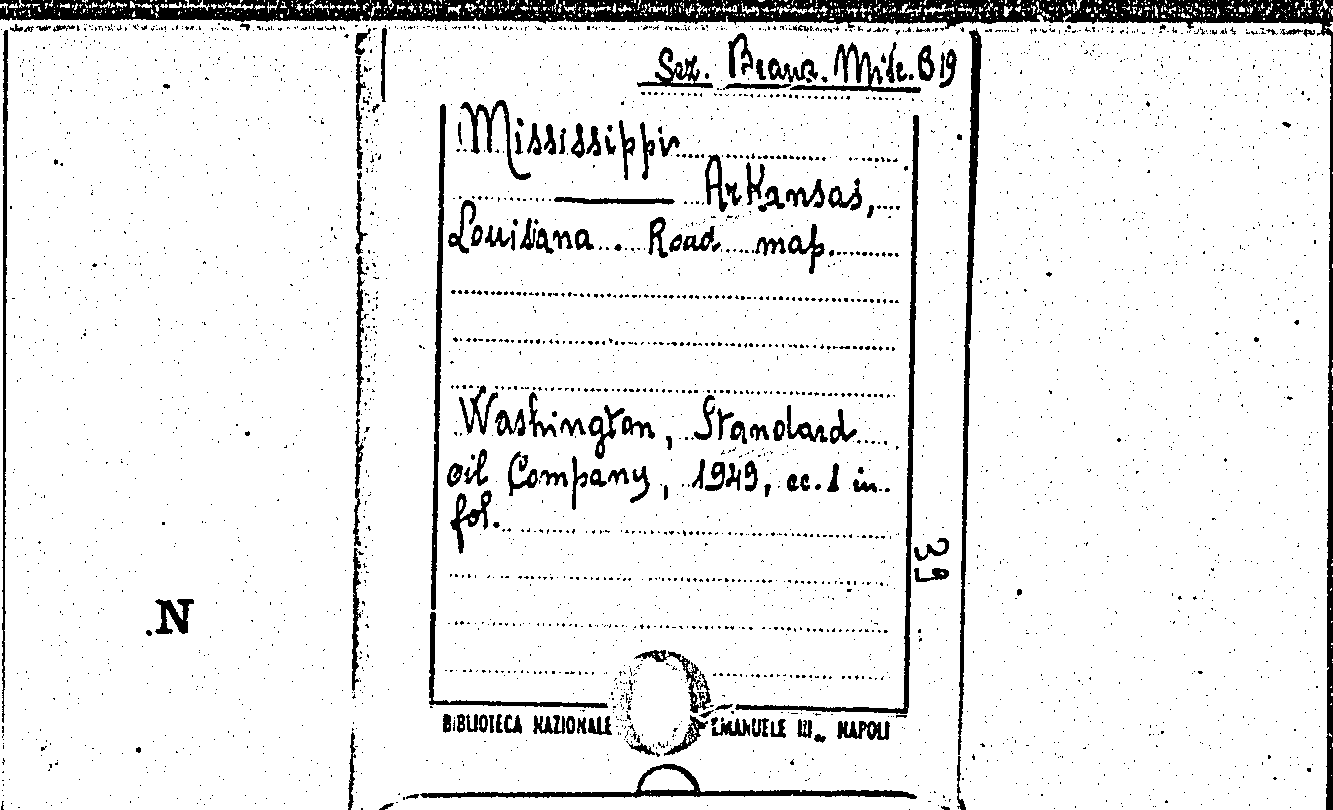 Sez. Branc. Misc. B 19
Mississippi
—— Arkansas,
Louisiana. Road map.
Washington, Standard
oil Company, 1949, cc. 1 in
fol.
39
N
BIBLIOTECA NAZIONALE EMANUELE III - NAPOLI